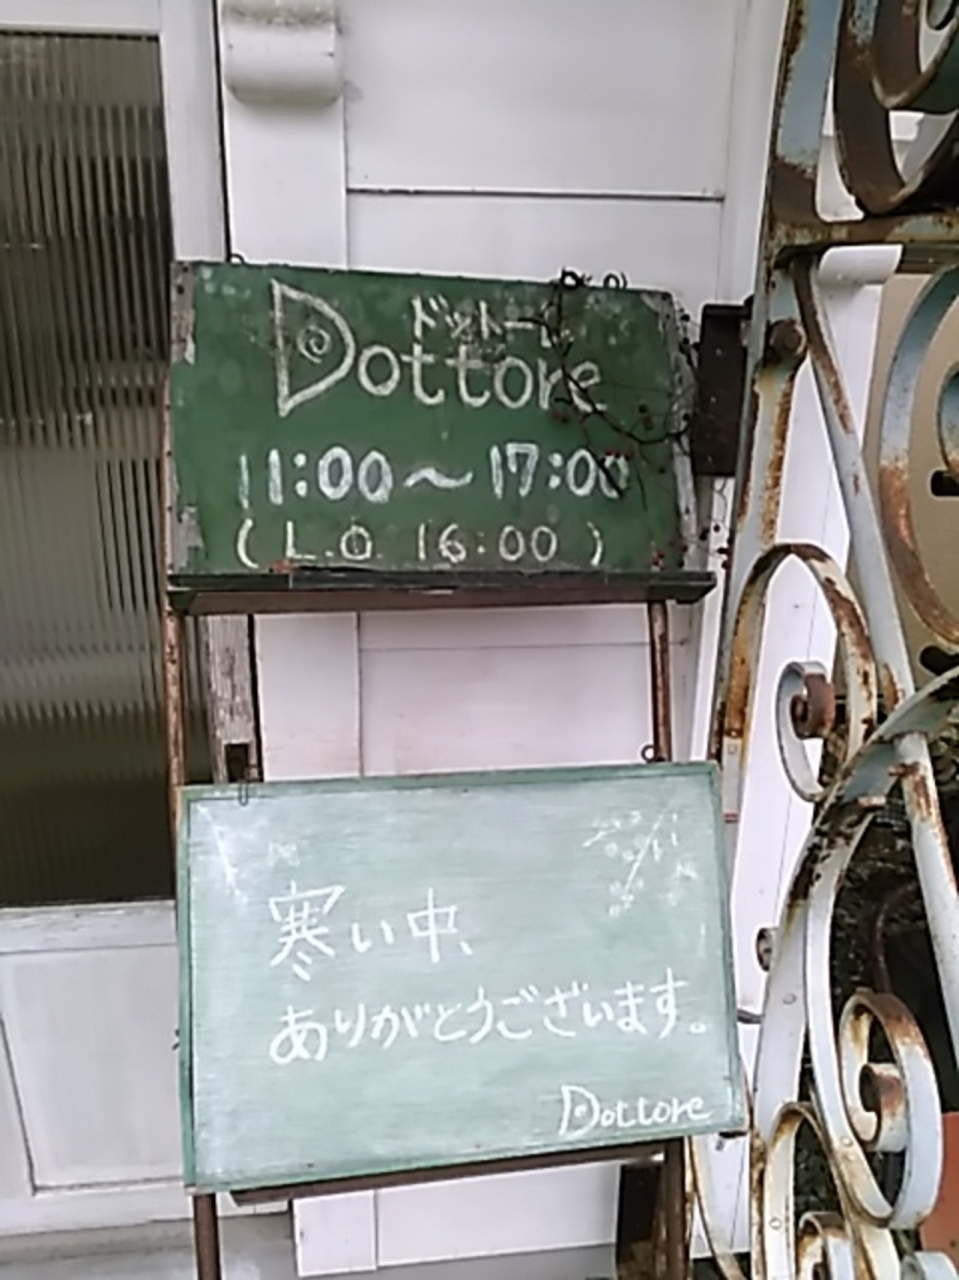 ドットーレ
Dottore
11:00～17:00
(L.O. 16:00)
寒い中、
ありがとうございます。
Dottore